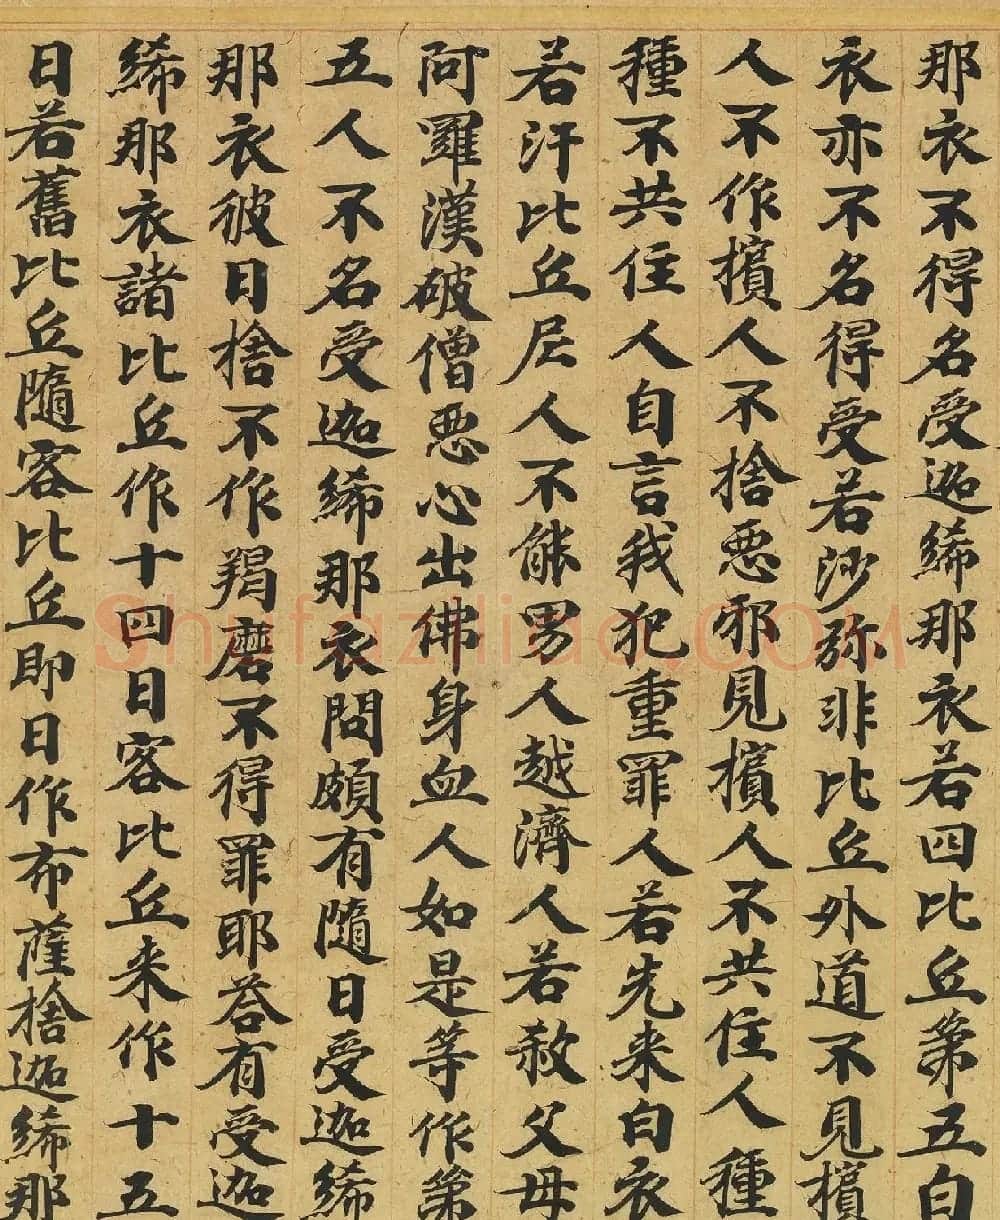 那衣不得名受迦絺那衣若四比丘第五白
衣亦不名得受若沙弥非比丘外道不見擯
人不作擯人不捨惡邪見擯人不共住人種
種不共住人自言我犯重罪人若先来白衣
若汙比丘尼人不能男人越濟人若殺父母
阿羅漢破僧惡心出佛身血人如是等作第
五人不名受迦絺那衣問頗有隨日受迦絺
那衣彼日捨不作羯磨不得罪耶荅有受迦
絺那衣諸比丘作十四日客比丘来作十五
日若舊比丘隨客比丘即日作布薩捨迦絺那
Shufaziliao.COM